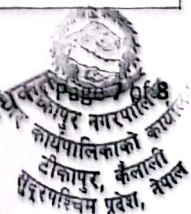 Page 7 of 8
टीकापुर नगरपालिका
कार्यपालिकाको कार्यालय
टीकापुर, कैलाली
सुदूरपश्चिम प्रदेश, नेपाल